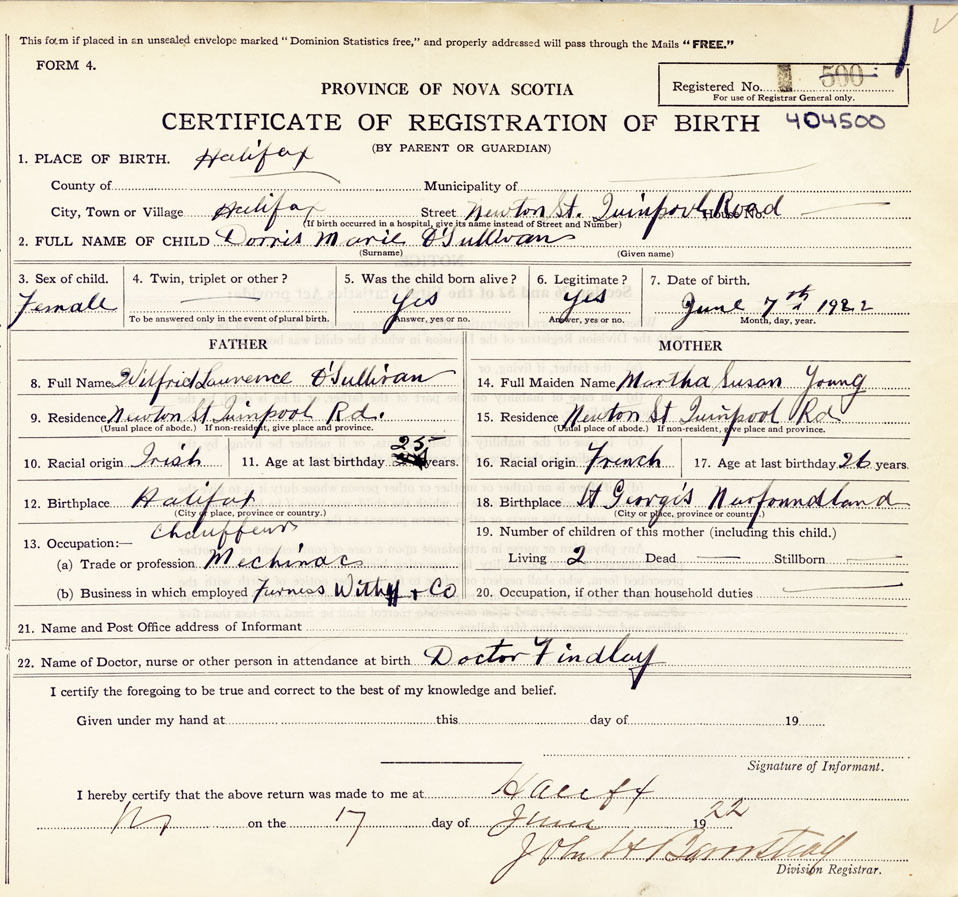 This form if placed in an unsealed envelope marked "Dominion Statistics free," and properly addressed will pass through the Mails "FREE."
FORM 4.
Registered No. 500
For use of Registrar General only.
PROVINCE OF NOVA SCOTIA
CERTIFICATE OF REGISTRATION OF BIRTH 404500
(BY PARENT OR GUARDIAN)
1. PLACE OF BIRTH. Halifax
County of Municipality of
City, Town or Village Halifax Street Newton St. Quinpool Road House No.
(If birth occurred in a hospital, give its name instead of Street and Number)
2. FULL NAME OF CHILD Dorris Marie O'Sullivan
(Surname) (Given name)
3. Sex of child. Female
4. Twin, triplet or other?
To be answered only in the event of plural birth.
5. Was the child born alive? Yes
Answer, yes or no.
6. Legitimate? Yes
Answer, yes or no.
7. Date of birth. June 7th 1922
Month, day, year.
FATHER
8. Full Name Wilfrid Laurence O'Sullivan
9. Residence Newton St Quinpool Rd.
(Usual place of abode.) If non-resident, give place and province.
10. Racial origin Irish 11. Age at last birthday 25 years.
12. Birthplace Halifax
(City or place, province or country.)
Chauffeur
13. Occupation:—
(a) Trade or profession Mechinac
(b) Business in which employed Furness Withy + Co
MOTHER
14. Full Maiden Name Martha Susan Young
15. Residence Newton St Quinpool Rd
(Usual place of abode.) If non-resident, give place and province.
16. Racial origin French 17. Age at last birthday 26 years.
18. Birthplace St Georgis Newfoundland
(City or place, province or country.)
19. Number of children of this mother (including this child.)
Living 2 Dead Stillborn
20. Occupation, if other than household duties
21. Name and Post Office address of Informant
22. Name of Doctor, nurse or other person in attendance at birth Doctor Findlay
I certify the foregoing to be true and correct to the best of my knowledge and belief.
Given under my hand at this day of 19
Signature of Informant.
I hereby certify that the above return was made to me at Halifax
NS on the 17 day of June 1922
John H Barnstead
Division Registrar.